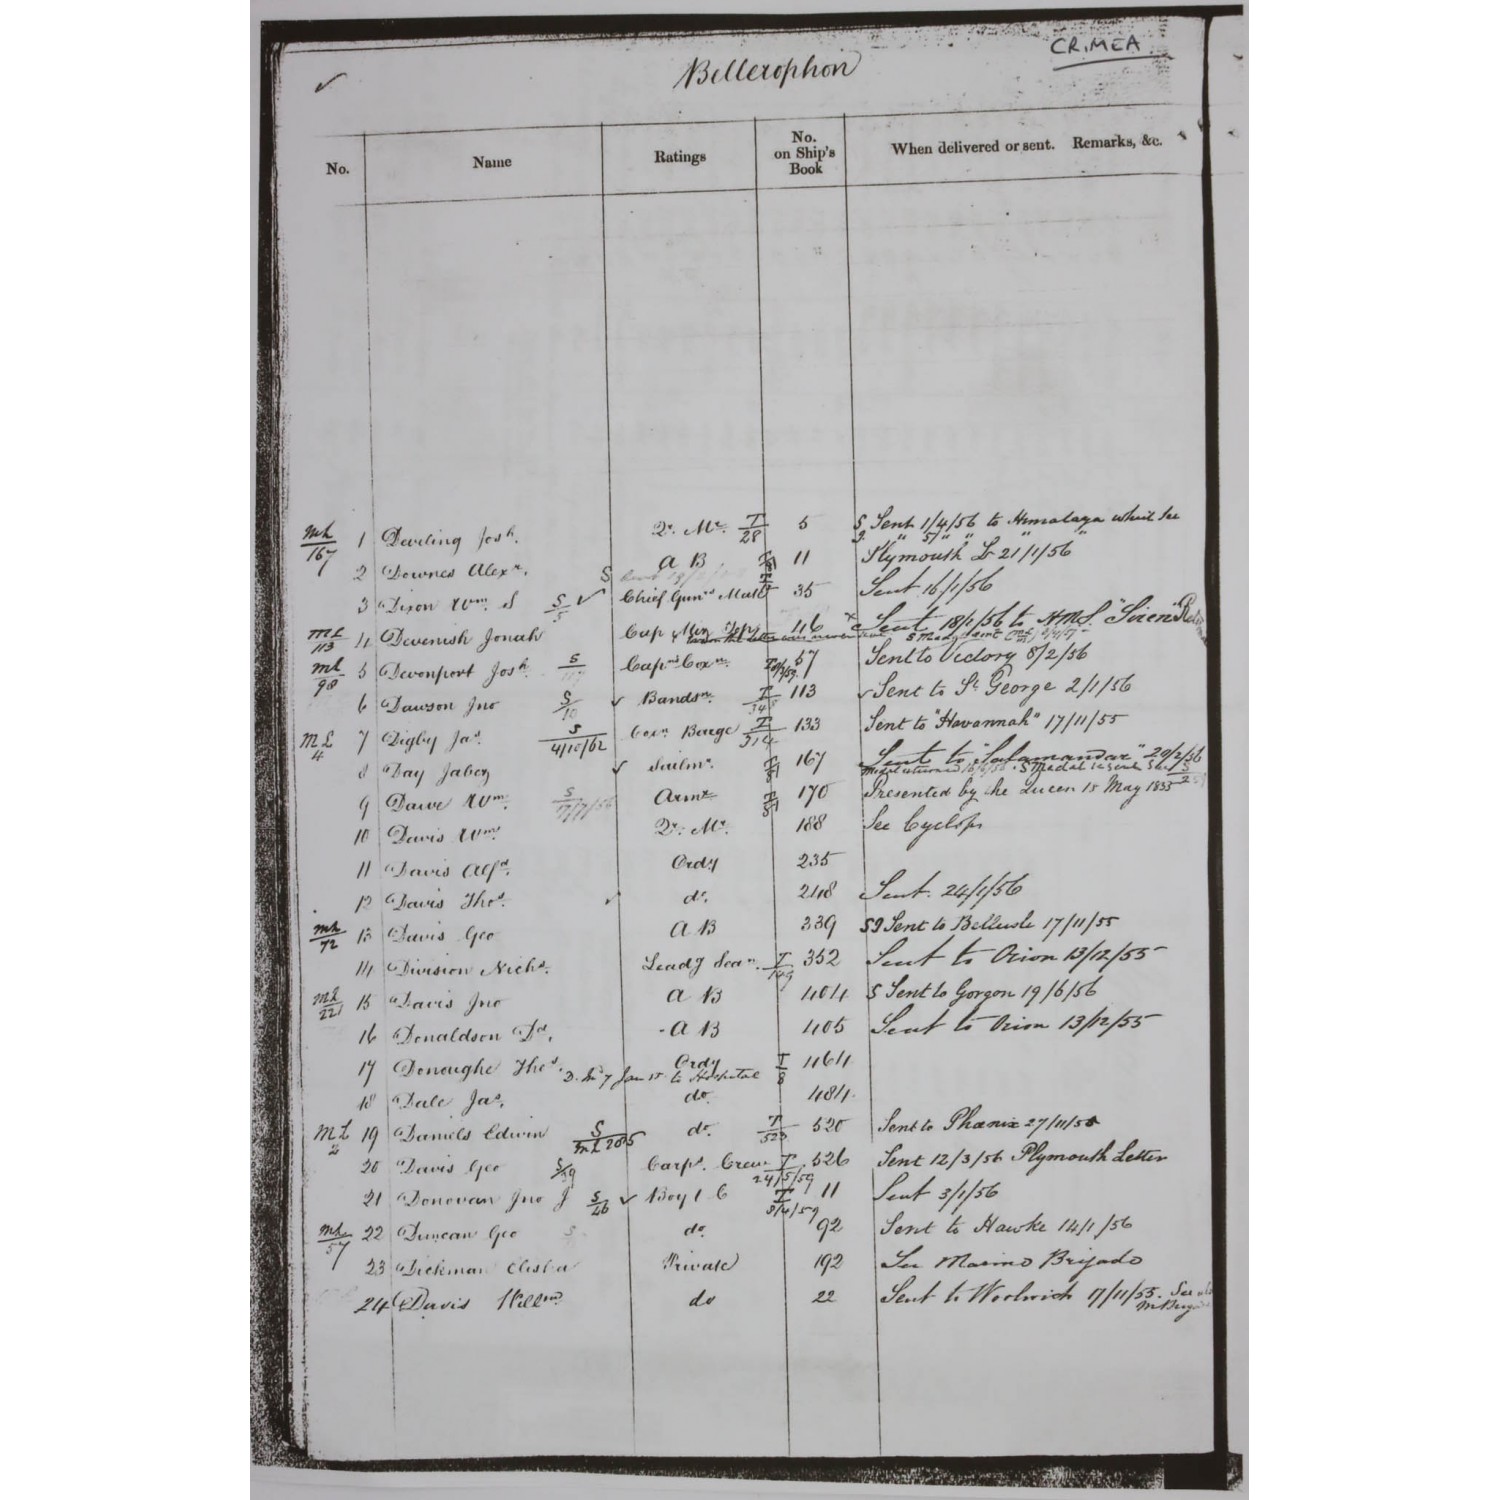 CRIMEA
Bellerophon
No. Name Ratings No. on Ship's Book When delivered or sent. Remarks, &c.
ML/167 1 Deviling Josh. Qr. Mr. T/28 5 S Sent 1/4/56 to Himalaya
2 Downes Alexr. A B 11 Plymouth Lr 21/1/56
3 Dixon Wm. S S/5 ✓ Chief Gunrs Mate 35 Sent 16/1/56
ML/113 4 Devenish Jonah Cap Miz Top 46 Sent 18/1/56 to H.M.S. "Siren"
ML/98 5 Devonport Josh. S Capns Coxn. 57 Sent to Victory 8/2/56
6 Dawson Jno S/10 ✓ Bandsn. T/345 113 ✓ Sent to St. George 2/1/56
ML/4 7 Digby Jas. S 4/10/62 Coxn Barge T/314 133 Sent to "Havannah" 17/11/55
8 Day Jabez ✓ Sailmr. 167 Sent to "Salamander" 29/2/56
9 Dawe Wm. S 17/7/56 Armr 170 Presented by the Queen 18 May 1855
10 Davis Wm Qr. Mr. 188 See Cyclops
11 Davis Alfd. Ordy 235
12 Davis Thos. ✓ do. 248 Sent. 24/1/56
ML/72 13 Davis Geo A B 339 Sent to Belleisle 17/11/55
14 Division Nichs. Leadg Sean. T/149 352 Sent to Orion 13/12/55
ML/221 15 Davis Jno A B 404 S Sent to Gorgon 19/6/56
16 Donaldson Dd. A B 405 Sent to Orion 13/12/55
17 Donoughe Thos. Ordy T/8 464
7 Jan to Hospital
18 Dale Jas. do. 484
ML/2 19 Daniels Edwin S/ML 285 do. T/523 520 Sent to Phœnix 27/11/55
20 Davis Geo S/39 Carps. Crew T 24/5/59 526 Sent 12/3/56 Plymouth Letter
21 Donovan Jno J S/46 ✓ Boy 1 C T 5/4/59 11 Sent 3/1/56
ML/57 22 Duncan Geo S do. 92 Sent to Hawke 14/1/56
23 Dickman Elisha Private 192 See Marine Brigade
24 Davis Willm. do 22 Sent to Woolwich 17/11/55. See